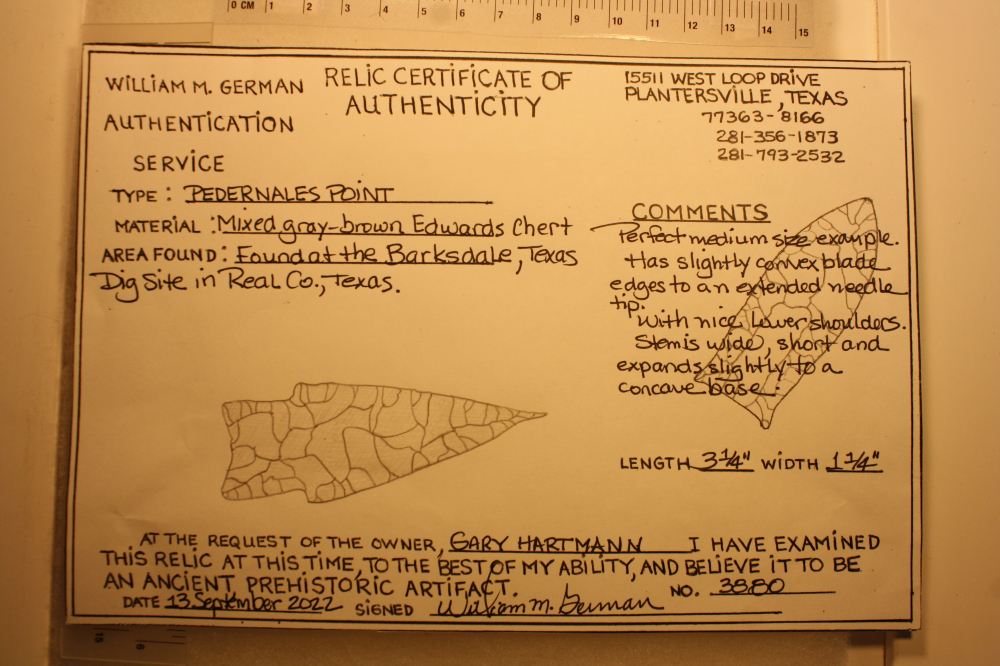 0 CM 1 2 3 4 5 6 7 8 9 10 11 12 13 14 15
WILLIAM M. GERMAN
AUTHENTICATION
SERVICE
RELIC CERTIFICATE OF
AUTHENTICITY
15511 WEST LOOP DRIVE
PLANTERSVILLE, TEXAS
77363-8166
281-356-1873
281-793-2532
TYPE: PEDERNALES POINT
MATERIAL: Mixed gray-brown Edwards Chert
AREA FOUND: Found at the Barksdale, Texas
Dig Site in Real Co., Texas.
COMMENTS
Perfect medium size example.
Has slightly convex blade
edges to an extended needle
tip.
With nice lower shoulders.
Stem is wide, short and
expands slightly to a
concave base.
LENGTH 3 1/4" WIDTH 1 1/4"
AT THE REQUEST OF THE OWNER, GARY HARTMANN I HAVE EXAMINED
THIS RELIC AT THIS TIME, TO THE BEST OF MY ABILITY, AND BELIEVE IT TO BE
AN ANCIENT PREHISTORIC ARTIFACT. NO. 3880
DATE 13 September 2022 SIGNED William M. German
15 6